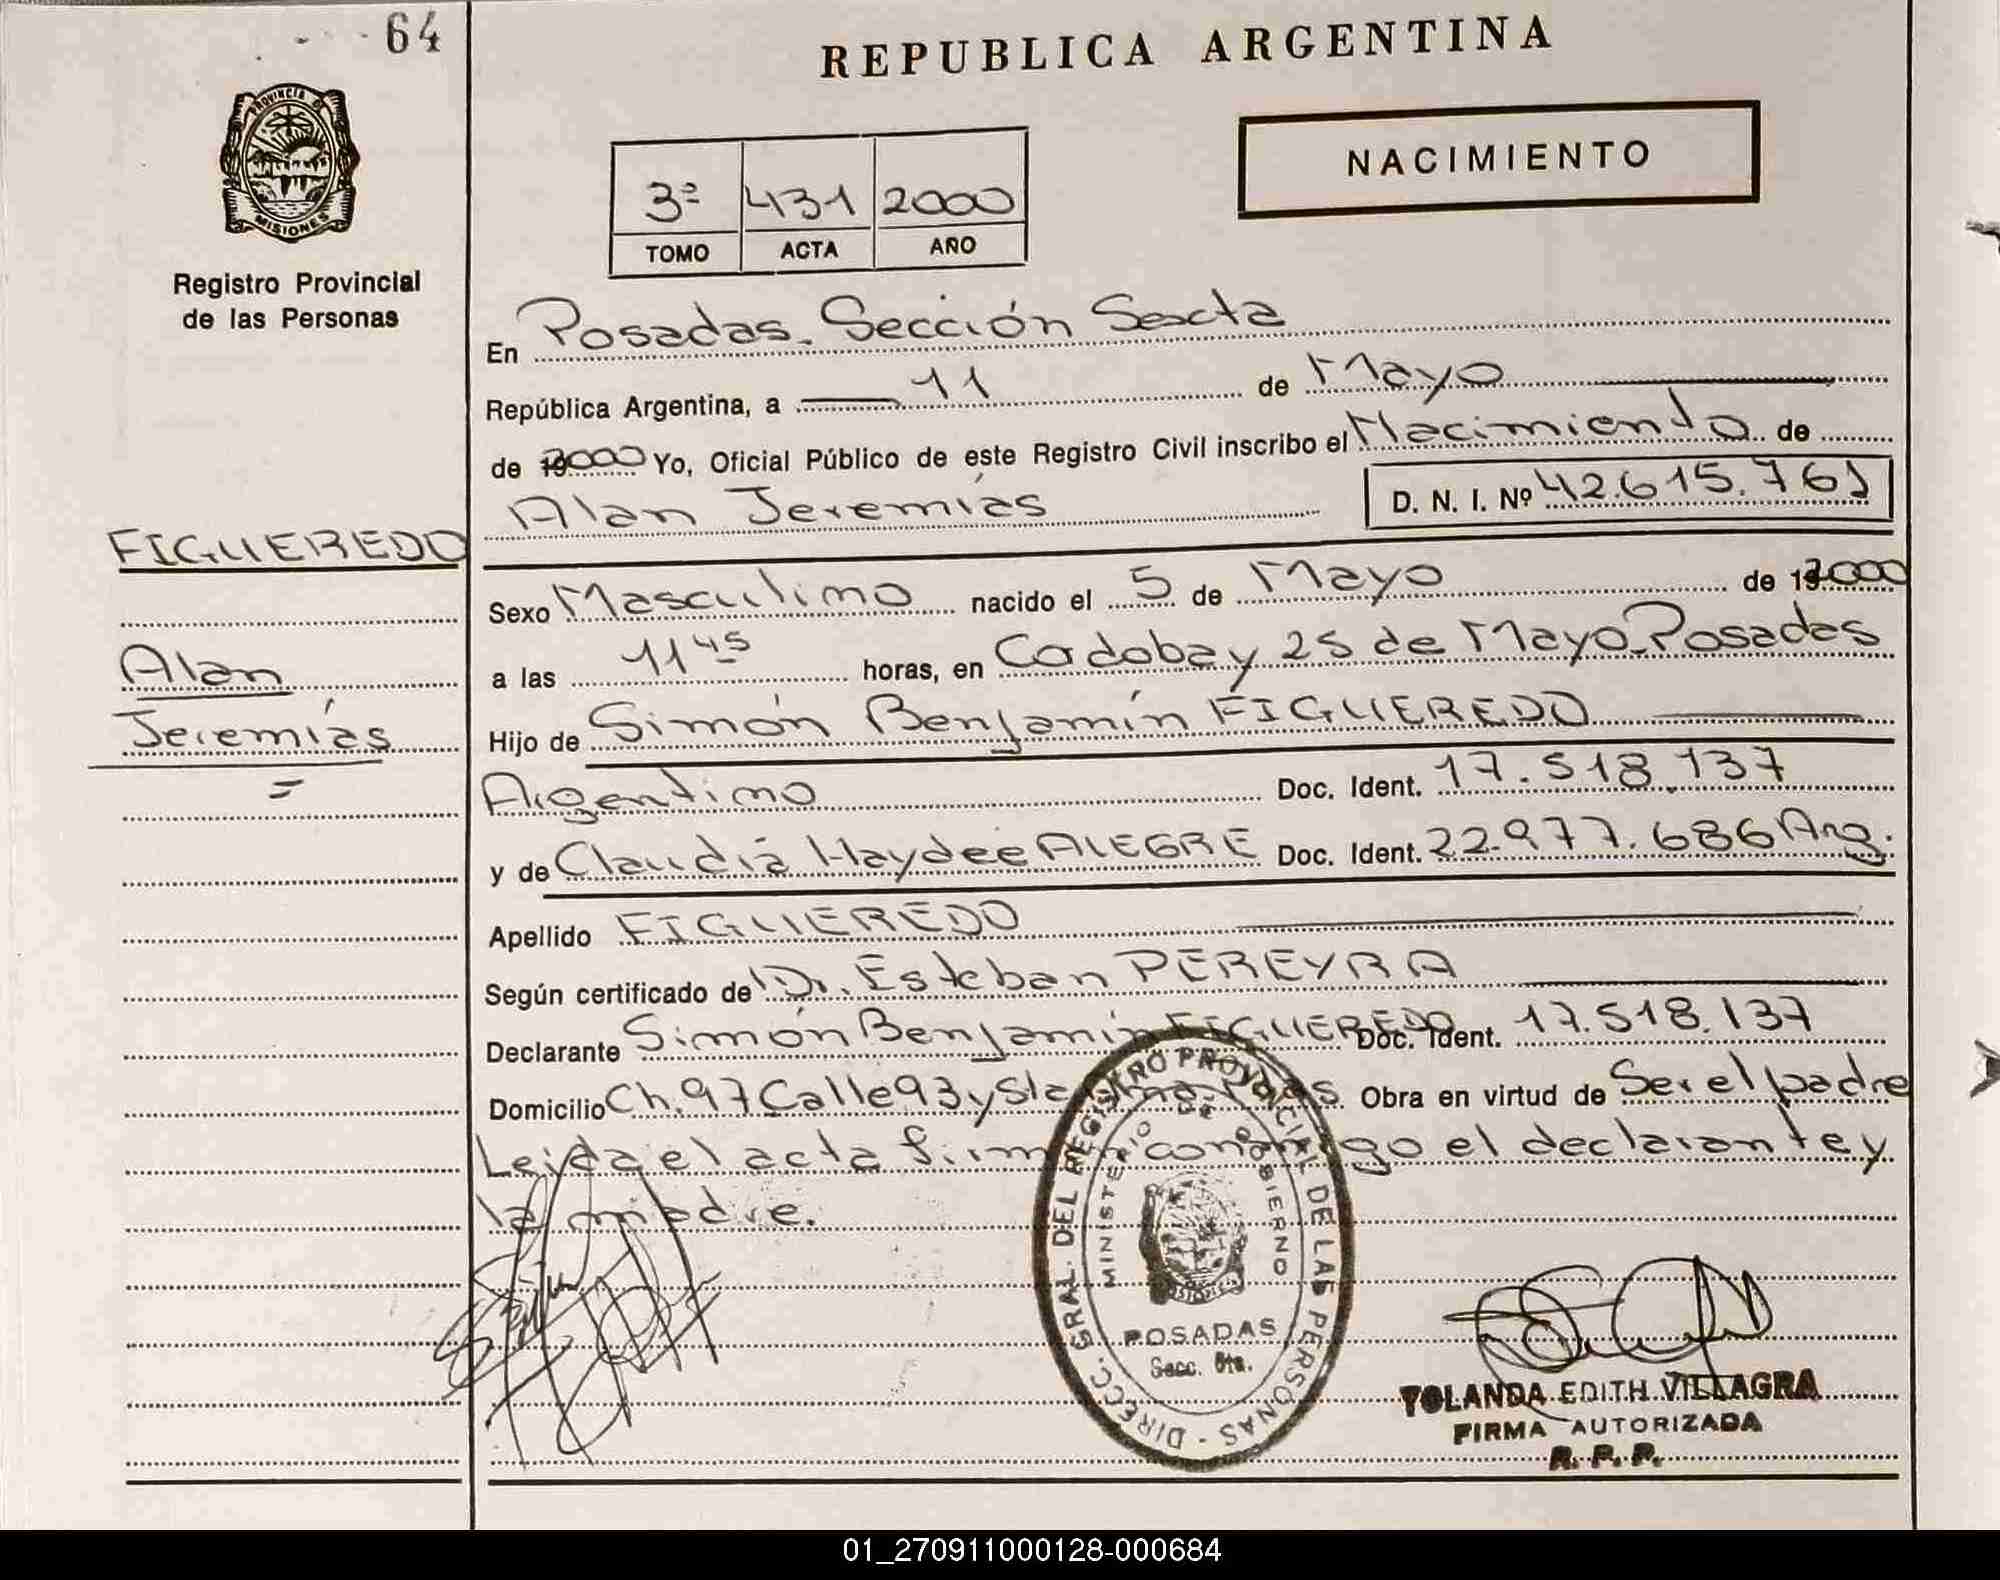 64
REPUBLICA ARGENTINA
PROVINCIA DE
MISIONES
Registro Provincial
de las Personas
NACIMIENTO
3º 431 2000
TOMO ACTA AÑO
En Posadas. Sección Sexta
República Argentina, a 11 de Mayo
de 2000 Yo, Oficial Público de este Registro Civil inscribo el Nacimiento de
Alan Jeremías D. N. I. Nº 42.615.761
FIGUEREDO
Alan
Jeremías
Sexo Masculino nacido el 5 de Mayo de 2000
a las 11 45 horas, en Cordoba y 25 de Mayo. Posadas
Hijo de Simón Benjamín FIGUEREDO
Argentino Doc. Ident. 17.518.137
y de Claudia Haydee ALEGRE Doc. Ident. 22.977.686 Arg.
Apellido FIGUEREDO
Según certificado de Dr. Esteban PEREYRA
Declarante Simón Benjamín FIGUEREDO Doc. Ident. 17.518.137
Domicilio Ch. 97 Calle 93 y Sta Obra en virtud de Ser el padre
Leida el acta firman conmigo el declarante y
la madre.
DIRECC. GRAL. DEL REGISTRO PROVINCIAL DE LAS PERSONAS -
MINISTERIO DE GOBIERNO
POSADAS
Secc. 6ta.
YOLANDA EDITH VILLAGRA
FIRMA AUTORIZADA
R. P. P.
01_270911000128-000684